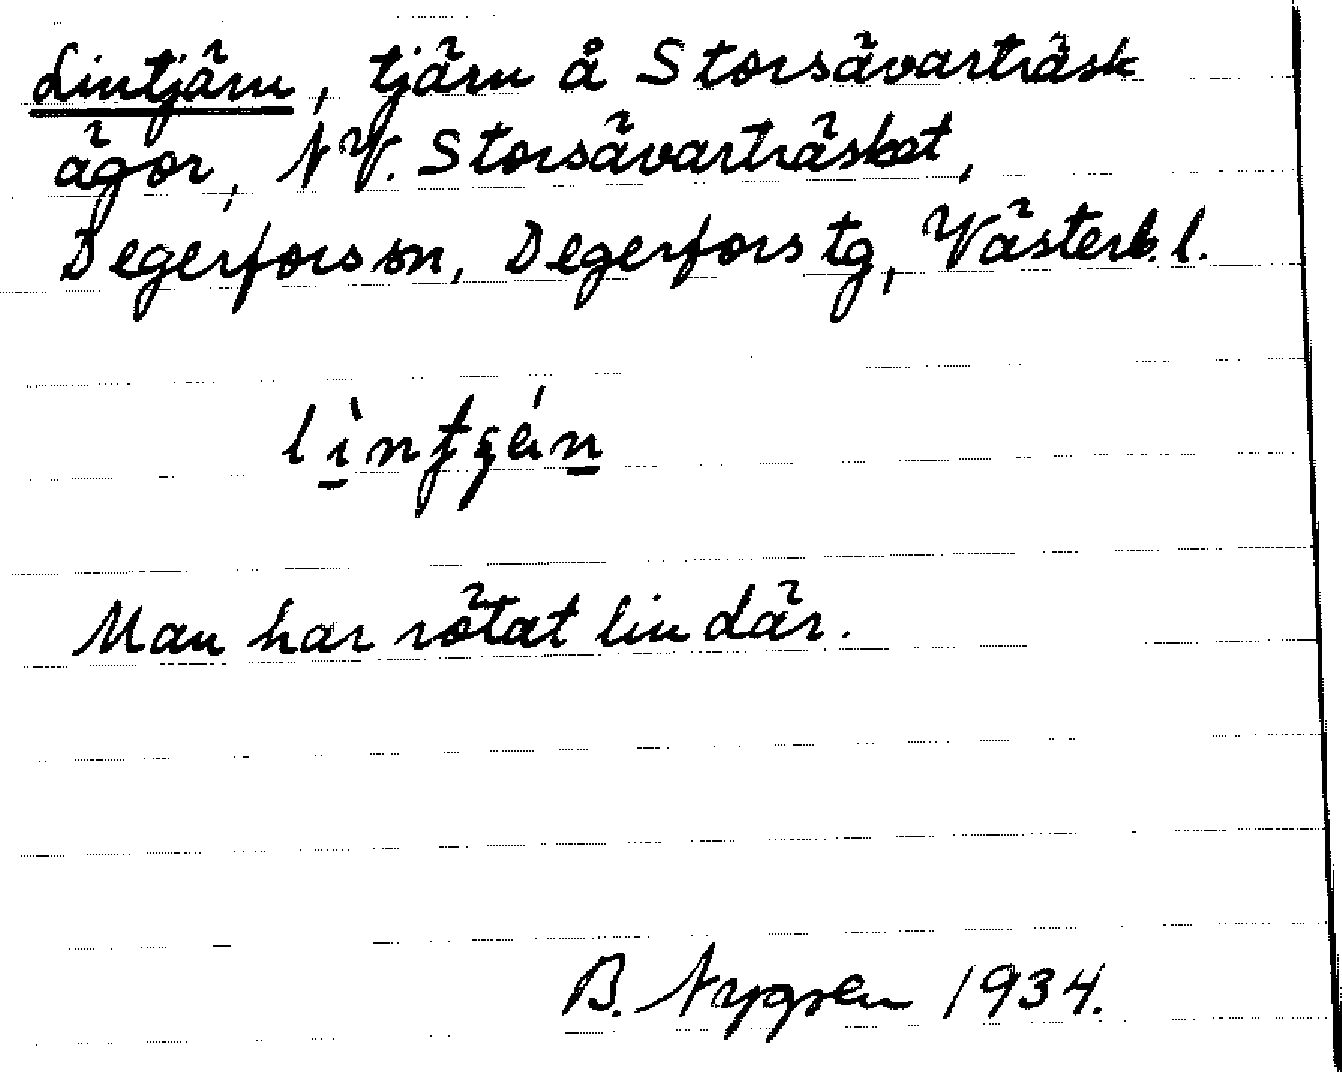 Lintjärn, tjärn å Storsävarträsk
ägor, NV. Storsävarträsket,
Degerfors sn, Degerfors tg, Västerb. l.
Man har rötat lin där.
B. Nygren 1934.